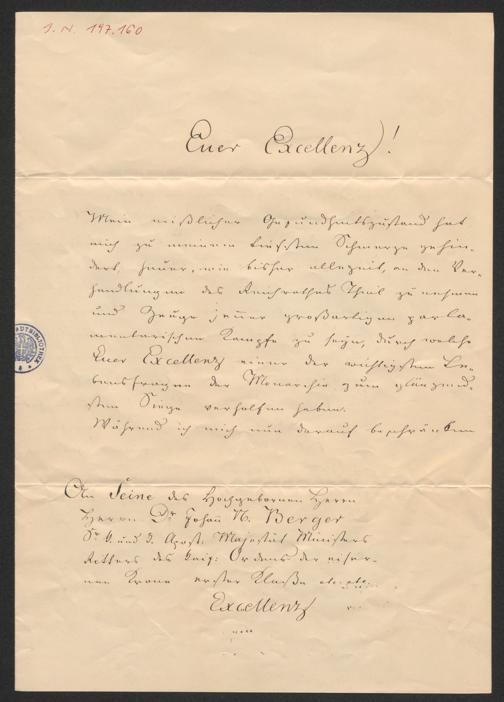 J. N. 197.160
Euer Excellenz!
Mein mißlicher Gesundheitszustand hat
mich zu meinem tiefsten Schmerze gehin-
dert, heuer, wie bisher allezeit, an den Ver-
handlungen des Reichrathes Theil zu nehmen
und Zeuge jener großartigen parla-
mentarischen Kämpfe zu seyn, durch welche
Euer Excellenz einer der wichtigsten Le-
bensfragen der Monarchie zum glänzend-
sten Siege verholfen haben.
Während ich mich nun darauf beschränken
An Seine des Hochgebornen Herrn
Herrn Dr Johann N. Berger
Sr k. und k. Apost. Majestät Ministers
Ritters des kais: Ordens der eiser-
nen Krone erster Klaße etc. etc.
Excellenz